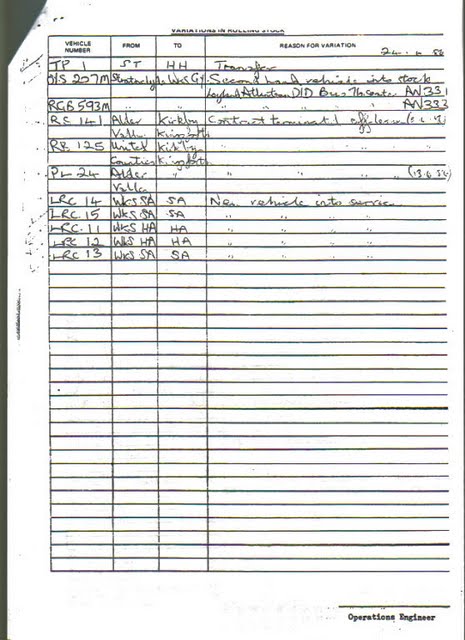 VARIATIONS IN ROLLING STOCK
VEHICLE NUMBER FROM TO REASON FOR VARIATION
TP 1 ST HH Transfer
207M Strathclyde Wks GY Second hand vehicle into stock
Leyland Atlantean D/D Bus 76 seater AN331
RGB 593M " " " " AN333
RC 141 Alder Kirkby Contract terminated
Valley Kingsforth
RB 125 United Kirkby " " "
Counties Kingsforth
PL 24 Alder " " "
Valley
LRC 14 WKS SA SA New vehicle into service
LRC 15 WKS SA SA " " "
LRC 11 WKS HA HA " " "
LRC 12 WKS HA HA " " "
LRC 13 WKS SA SA " " "
Operations Engineer